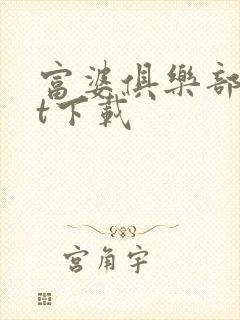 富婆俱樂部
t下載
宮角宇